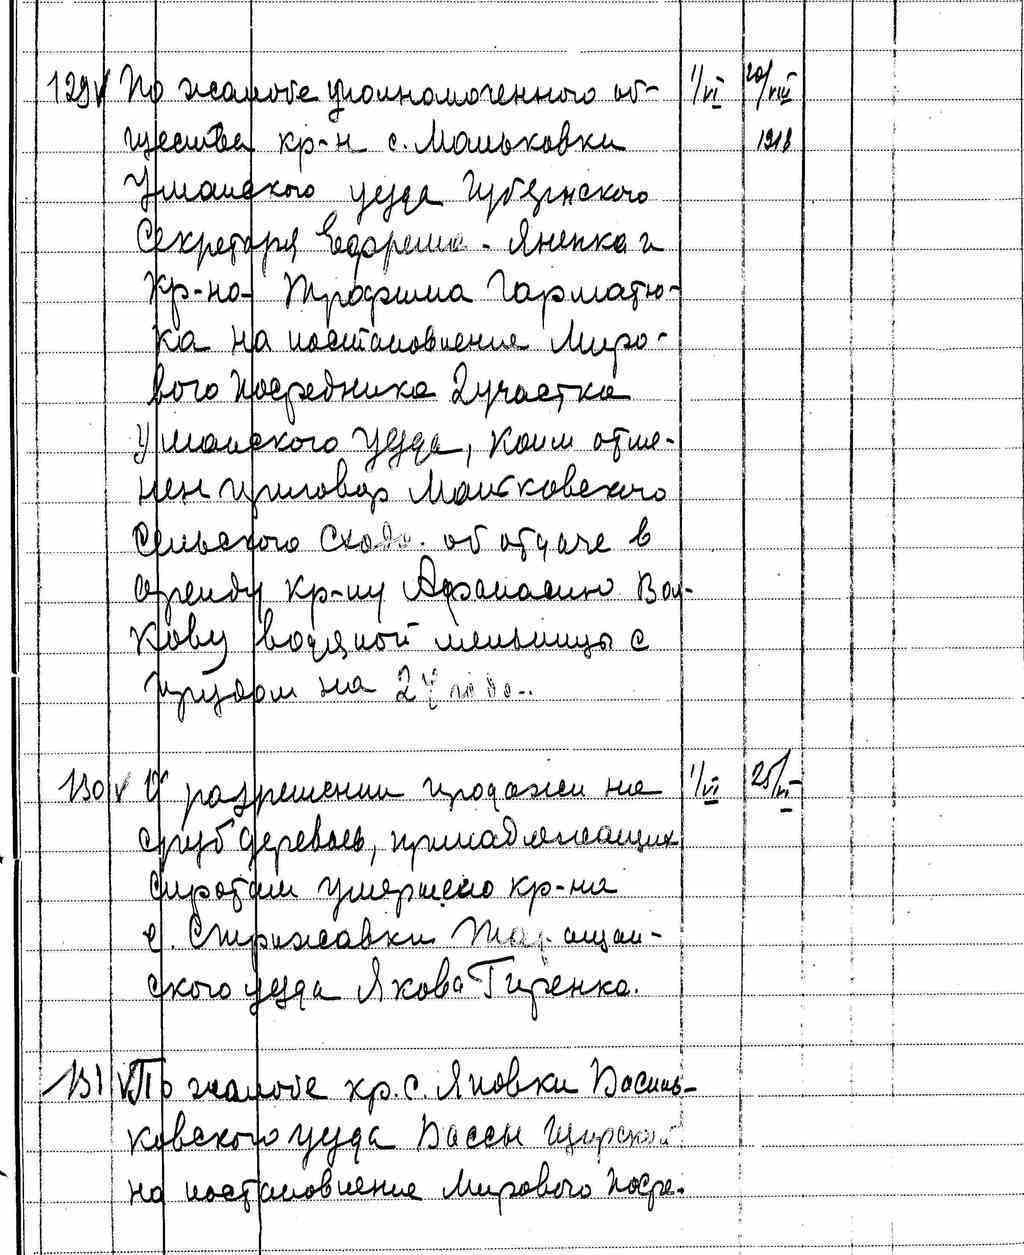 129 √ По жалобе уполномоченного об- 1/VI 20/VIII
щества кр-н с. Маньковки 1918
Уманского уезда Губернского
Секретаря Ефрема Яненка и
Кр-на Трофима Гарматю-
ка на постановление Миро-
вого Посредника 2 участка
Уманского уезда, коим отме-
нен приговор Маньковского
Сельского Схода об отдаче в
аренду кр-ну Афанасию Вол-
кову водяной мельницы с
прудом на 24 года.
130 √ О разрешении продажи на 1/VI 25/VI
сруб деревьев, принадлежащих
сиротам умершего кр-на
с. Стрижавки Таращан-
ского уезда Якова Гиренка.
131 √ По жалобе кр. с. Яновки Василь-
ковского уезда Вассы
на постановление Мирового Посре-